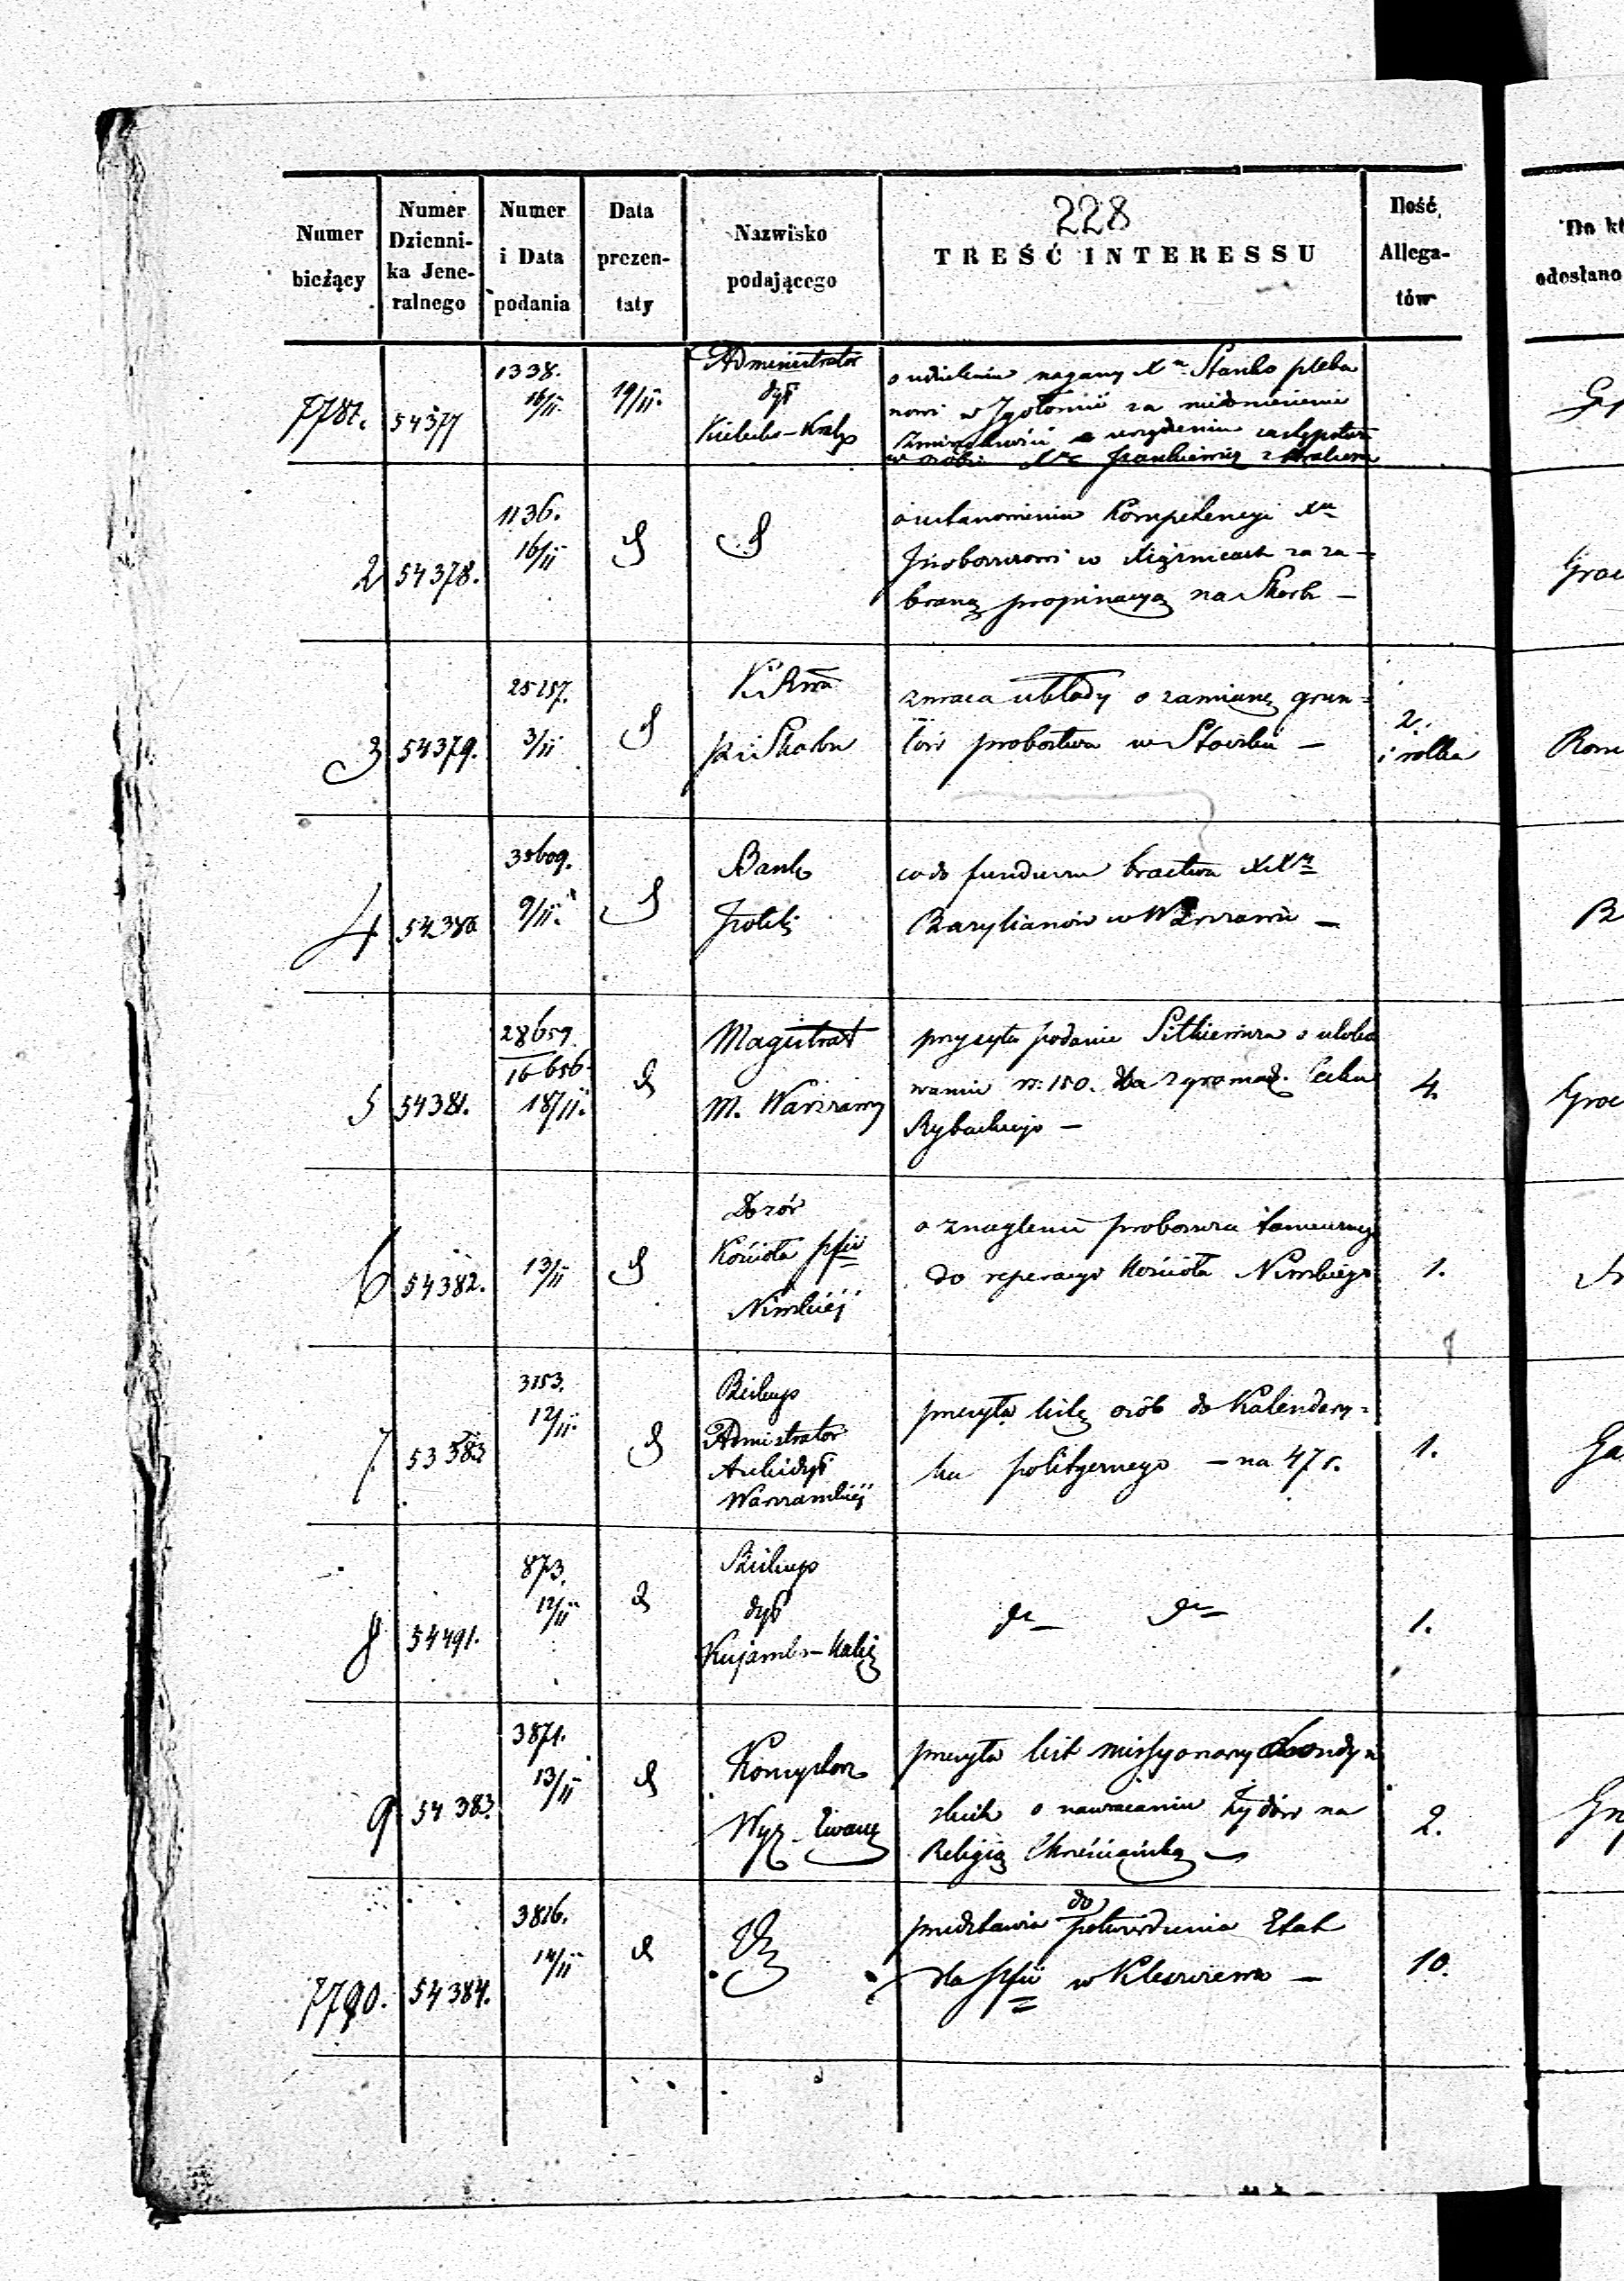 228
Numer bieżący
Numer Dzienni-ka Jene-ralnego
Numer i Data podania
Data prezen-taty
Nazwisko podającego
TREŚĆ INTERESSU
Ilość Allega-tów
Do kt
odesłano
7781. 54377
1338.
16/11.
19/11.
Administrator
dyć
Kielecko-Krak
o udzieleniu nagany Xu Stańko pleba
nowi w Igołomii za niedoniesienie
w osobie
2 54378.
1136.
16/11
o ustanowieniu kompetencyi Xu
Proboszczowi w za za-
braną propinacyą na Skarb —
3 54379.
25157.
3/11
K. Rwa
Pz i Skarbu
zwraca układy o zamianę grun-
tów probostwa w —
2.
i rolka
Rom
4 54380
35609.
9/11.
Bank
Polski
co do funduszu bractwa XXy
Bazylianów w Warszawie —
B
5 54381.
28659.
16656.
18/11.
Magistrat
M. Warszawy
przysyła podanie Sitkiewicza o uloko
wanie rs: 150. dla zgromadz. Cechu
Rybackiego —
4.
6 54382.
13/11
Dozór
Kościoła pfii
o znaglenie proboszcza tamecznego
do reperacyi kościoła
1.
7. 53383
3153.
12/11.
Biskup
Admistrator
Archidyć
Warszawskiej
przesyła listę osób do Kalendarzy-
ka politycznego — na 47 r.
1.
Ga
8 54491.
873.
12/11
Biskup
dyć
Kujawsko-Kalis
dto dto
1.
9 54383.
3871.
13/11
Konsystorz
Wyz. Ewang
przesyła list missyonarzy Londyń
skich o nawracaniu Żydów na
Religią Chrześciańską —
2.
7790. 54384.
3816.
14/11
do
przedstawia potwierdzenia Etat
dla pfii w Kleszczewie —
10.